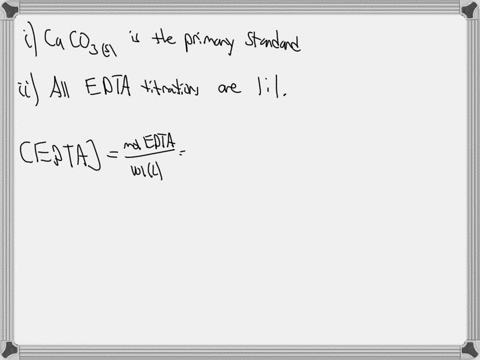 i) CaCO3(s) is the primary standard
ii) All EDTA titrations are 1:1.
[EDTA] = mol EDTA / vol(L) =